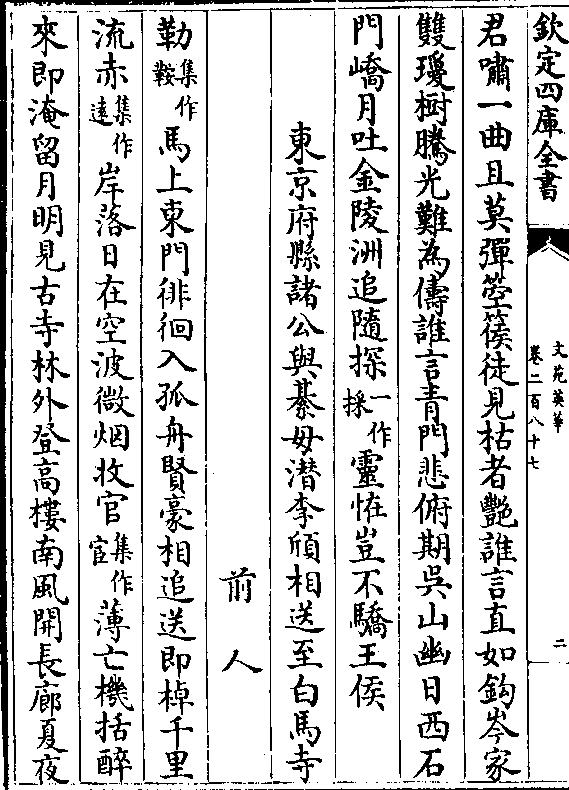 欽定四庫全書
文苑英華
卷二百八十七
二
君嘯一曲且莫彈箜篌徒見枯者艷誰言直如鈎岑家
雙瓊樹騰光難為儔誰言青門悲俯期吳山幽日西石
門嶠月吐金陵洲追隨探一作採靈恠豈不驕王侯
東京府縣諸公與綦毋潛李頎相送至白馬寺
前人
勒集作鞍馬上東門徘徊入孤舟賢豪相追送即棹千里
流赤集作遠岸落日在空波微烟收官集作宦薄亡機括醉
來即淹留月明見古寺林外登高樓南風開長廊夏夜